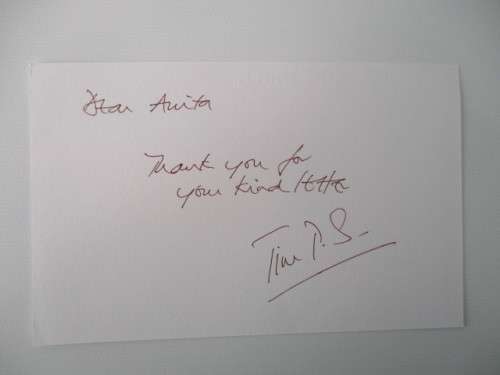 Dear Anita
Thank you for
your kind letter
Tim P. S.